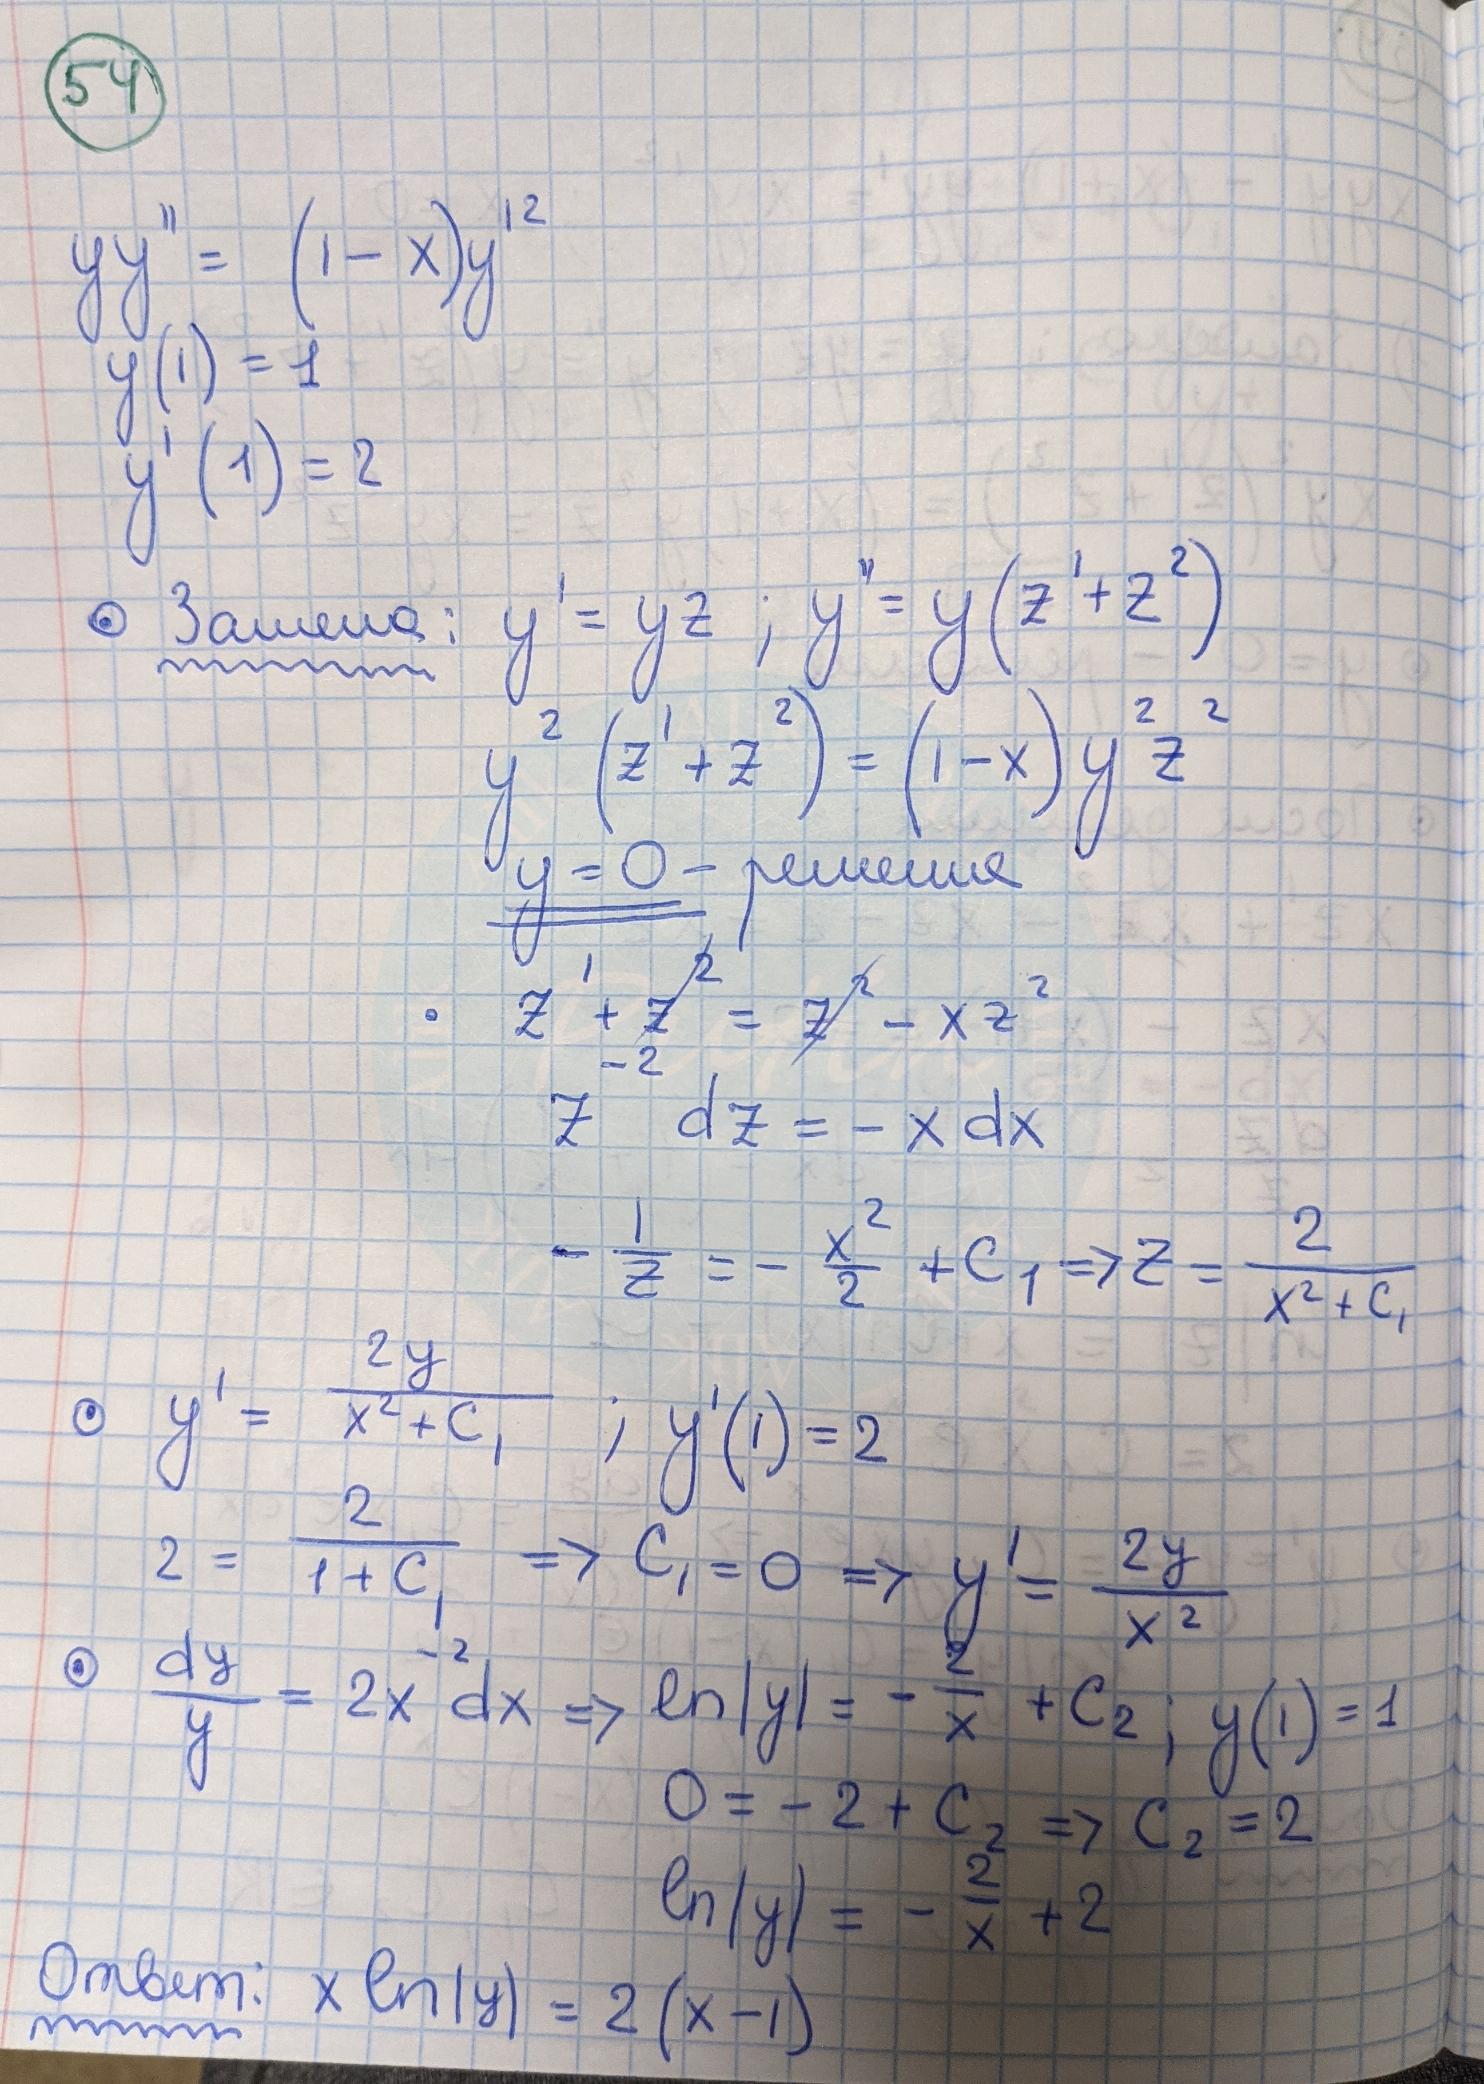 54
yy'' = (1-x)y'²
y(1) = 1
y'(1) = 2
Замена: y' = yz ; y'' = y(z' + z²)
y² (z' + z²) = (1-x) y² z²
y = 0 - решение
· z' + z² = z² - xz²
z⁻² dz = - x dx
- 1/z = - x²/2 + C₁ => z = 2/(x² + C₁)
y' = 2y/(x² + C₁) ; y'(1) = 2
2 = 2/(1 + C₁) => C₁ = 0 => y' = 2y/x²
dy/y = 2x⁻² dx => ln|y| = - 2/x + C₂ ; y(1) = 1
0 = - 2 + C₂ => C₂ = 2
ln|y| = - 2/x + 2
Ответ: x ln|y| = 2(x-1)